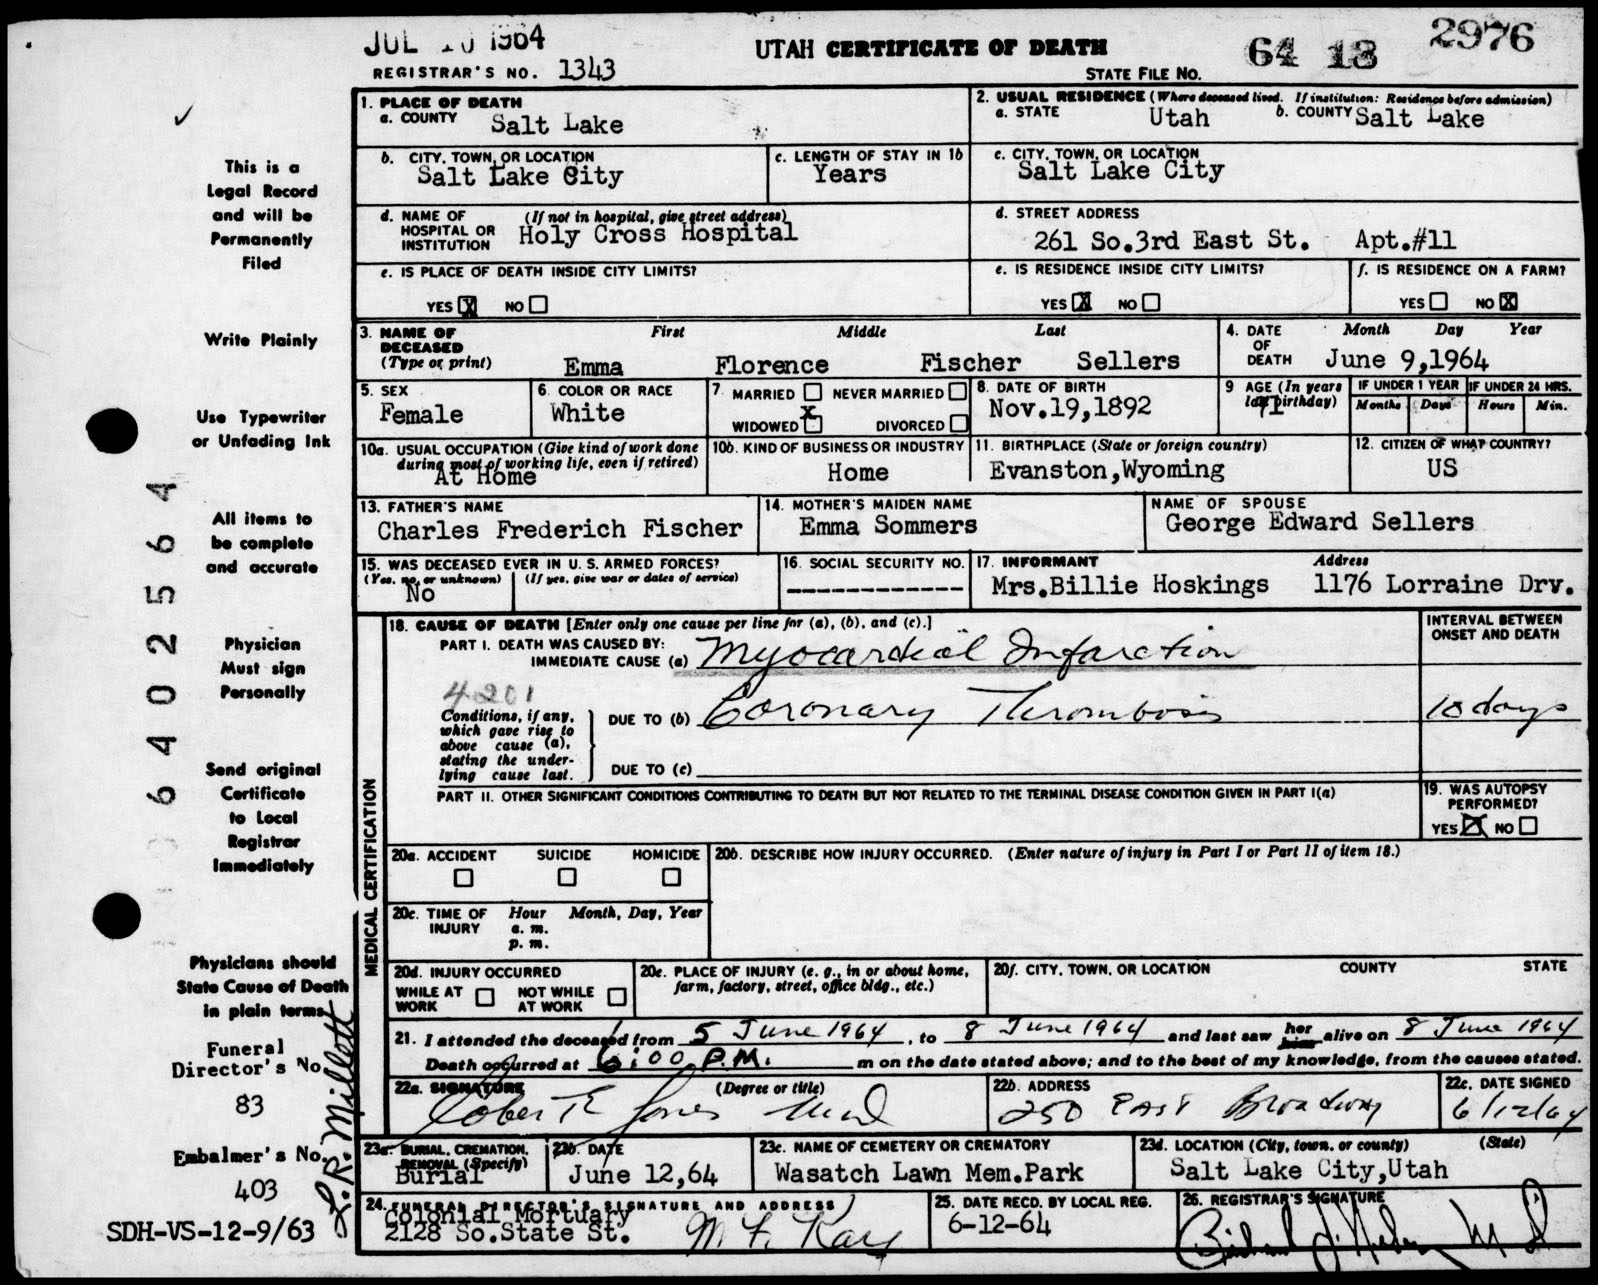 JUL 10 1964
REGISTRAR'S NO. 1343
UTAH CERTIFICATE OF DEATH
STATE FILE NO. 64 18 2976
This is a
Legal Record
and will be
Permanently
Filed
Write Plainly
Use Typewriter
or Unfading Ink
All items to
be complete
and accurate
Physician
Must sign
Personally
Send original
Certificate
to Local
Registrar
Immediately
Physicians should
State Cause of Death
in plain terms
Funeral
Director's No.
83
Embalmer's No.
403
SDH-VS-12-9/63
L.R. Millett
6402564
1. PLACE OF DEATH
a. COUNTY Salt Lake
2. USUAL RESIDENCE (Where deceased lived. If institution: Residence before admission)
a. STATE Utah b. COUNTY Salt Lake
b. CITY, TOWN, OR LOCATION
Salt Lake City
c. LENGTH OF STAY IN 1b
Years
c. CITY, TOWN, OR LOCATION
Salt Lake City
d. NAME OF HOSPITAL OR INSTITUTION (If not in hospital, give street address)
Holy Cross Hospital
d. STREET ADDRESS
261 So.3rd East St. Apt.#11
e. IS PLACE OF DEATH INSIDE CITY LIMITS?
YES X NO
e. IS RESIDENCE INSIDE CITY LIMITS?
YES X NO
f. IS RESIDENCE ON A FARM?
YES NO X
3. NAME OF DECEASED (Type or print) First Middle Last
Emma Florence Fischer Sellers
4. DATE OF DEATH Month Day Year
June 9,1964
5. SEX
Female
6. COLOR OR RACE
White
7. MARRIED NEVER MARRIED
WIDOWED X DIVORCED
8. DATE OF BIRTH
Nov.19,1892
9 AGE (In years last birthday)
71
IF UNDER 1 YEAR
Months Days
IF UNDER 24 HRS.
Hours Min.
10a. USUAL OCCUPATION (Give kind of work done during most of working life, even if retired)
At Home
10b. KIND OF BUSINESS OR INDUSTRY
Home
11. BIRTHPLACE (State or foreign country)
Evanston,Wyoming
12. CITIZEN OF WHAT COUNTRY?
US
13. FATHER'S NAME
Charles Frederich Fischer
14. MOTHER'S MAIDEN NAME
Emma Sommers
NAME OF SPOUSE
George Edward Sellers
15. WAS DECEASED EVER IN U. S. ARMED FORCES?
(Yes, no, or unknown) (If yes, give war or dates of service)
No
16. SOCIAL SECURITY NO.
-------------
17. INFORMANT Address
Mrs.Billie Hoskings 1176 Lorraine Drv.
MEDICAL CERTIFICATION
18. CAUSE OF DEATH [Enter only one cause per line for (a), (b), and (c).]
INTERVAL BETWEEN ONSET AND DEATH
PART I. DEATH WAS CAUSED BY:
IMMEDIATE CAUSE (a) Myocardial Infarction
4201
Conditions, if any, which gave rise to above cause (a), stating the underlying cause last.
DUE TO (b) Coronary Thrombosis 10 days
DUE TO (c)
PART II. OTHER SIGNIFICANT CONDITIONS CONTRIBUTING TO DEATH BUT NOT RELATED TO THE TERMINAL DISEASE CONDITION GIVEN IN PART I(a)
19. WAS AUTOPSY PERFORMED?
YES X NO
20a. ACCIDENT SUICIDE HOMICIDE
20b. DESCRIBE HOW INJURY OCCURRED. (Enter nature of injury in Part I or Part II of item 18.)
20c. TIME OF INJURY Hour Month, Day, Year
a. m.
p. m.
20d. INJURY OCCURRED
WHILE AT WORK NOT WHILE AT WORK
20e. PLACE OF INJURY (e. g., in or about home, farm, factory, street, office bldg., etc.)
20f. CITY, TOWN, OR LOCATION COUNTY STATE
21. I attended the deceased from 5 June 1964, to 8 June 1964 and last saw her him alive on 8 June 1964
Death occurred at 6:00 P.M. m on the date stated above; and to the best of my knowledge, from the causes stated.
22a. SIGNATURE (Degree or title)
Robert E Jones M.D.
22b. ADDRESS
250 East Broadway
22c. DATE SIGNED
6/12/64
23a. BURIAL, CREMATION, REMOVAL (Specify)
Burial
23b. DATE
June 12,64
23c. NAME OF CEMETERY OR CREMATORY
Wasatch Lawn Mem.Park
23d. LOCATION (City, town, or county) (State)
Salt Lake City,Utah
24. FUNERAL DIRECTOR'S SIGNATURE AND ADDRESS
Colonial Mortuary
2128 So.State St.
25. DATE RECD. BY LOCAL REG.
6-12-64
26. REGISTRAR'S SIGNATURE